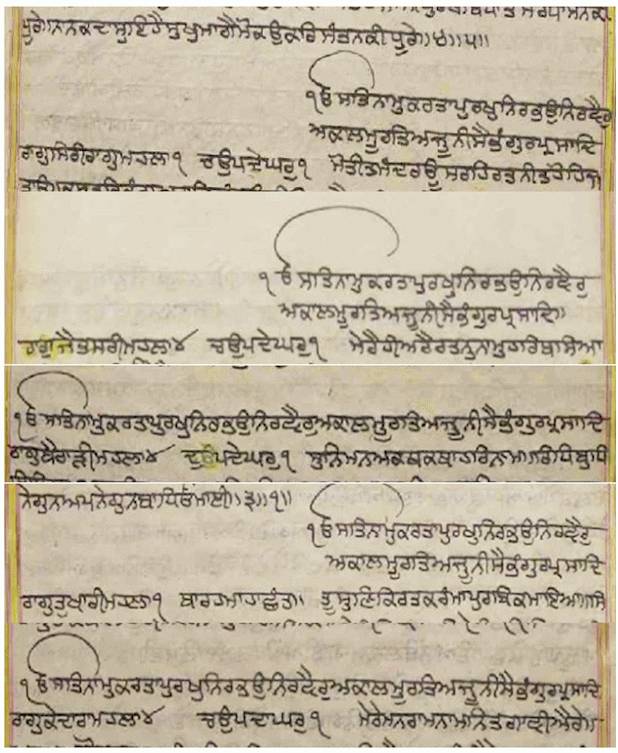 ਪੂਰੇ॥ਨਾਨਕਦਾਸੁਇਹੈਸੁਖੁਮਾਗੈਮੋਕਉਕਰਿਸੰਤਨਕੀਧੂਰੇ॥੪॥੫॥
ੴਸਤਿਨਾਮੁਕਰਤਾਪੁਰਖੁਨਿਰਭਉਨਿਰਵੈਰੁ
ਅਕਾਲਮੂਰਤਿਅਜੂਨੀਸੈਭੰਗੁਰਪ੍ਰਸਾਦਿ
ਰਾਗੁਸਿਰੀਰਾਗੁਮਹਲਾ੧ ਚਉਪਦੇਘਰੁ੧ ਮੋਤੀਤਮੰਦਰਊਸਰਹਿਰਤਨੀਤਹੋਹਿਜ
ੴਸਤਿਨਾਮੁਕਰਤਾਪੁਰਖੁਨਿਰਭਉਨਿਰਵੈਰੁ
ਅਕਾਲਮੂਰਤਿਅਜੂਨੀਸੈਭੰਗੁਰਪ੍ਰਸਾਦਿ॥
ਰਾਗੁਜੈਤਸਰੀਮਹਲਾ੪ ਚਉਪਦੇਘਰੁ੧ ਮੇਰੈਹੀਅਰੈਰਤਨੁਨਾਮੁਹਰਿਬਸਿਆ
ੴਸਤਿਨਾਮੁਕਰਤਾਪੁਰਖੁਨਿਰਭਉਨਿਰਵੈਰੁਅਕਾਲਮੂਰਤਿਅਜੂਨੀਸੈਭੰਗੁਰਪ੍ਰਸਾਦਿ
ਰਾਗੁਬੈਰਾੜੀਮਹਲਾ੪ ਦੁਉਪਦੇਘਰੁ੧ ਸੁਨਿਮਨਅਕਥਕਥਾਹਰਿਨਾਮ
ਨੇਗੁਨਅਪਨੇਗੁਨਬਾਧਿਓਮਾਲੀ॥੩॥੧॥
ੴਸਤਿਨਾਮੁਕਰਤਾਪੁਰਖੁਨਿਰਭਉਨਿਰਵੈਰੁ
ਅਕਾਲਮੂਰਤਿਅਜੂਨੀਸੈਭੰਗੁਰਪ੍ਰਸਾਦਿ
ਰਾਗੁਤੁਖਾਰੀਮਹਲਾ੧ ਬਾਰਹਮਾਹਾਛੰਤ॥ ਤੂਸੁਣਿਕਿਰਤਕਰੰਮਾਪੁਰਬਿਕਮਾਇਆ॥ਸਿ
ੴਸਤਿਨਾਮੁਕਰਤਾਪੁਰਖੁਨਿਰਭਉਨਿਰਵੈਰੁਅਕਾਲਮੂਰਤਿਅਜੂਨੀਸੈਭੰਗੁਰਪ੍ਰਸਾਦਿ
ਰਾਗੁਕੇਦਾਰਾਮਹਲਾ੪ ਚਉਪਦੇਘਰੁ੧ ਮੇਰੇਮਨਰਾਮਨਾਮਨਿਤਗਾਵੀਐਰੇ॥